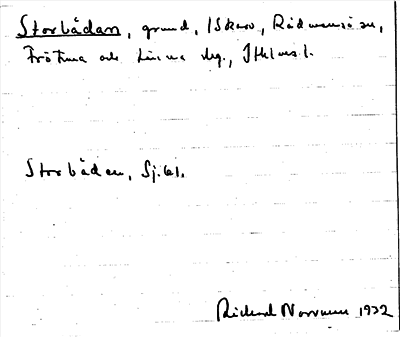 Storbådan, grund, 1 Skär, Rådmansö sn,
Frötuna och Länna skg., Sthlms l.
Storbådan, Sj.61.
Richard Norrman 1932